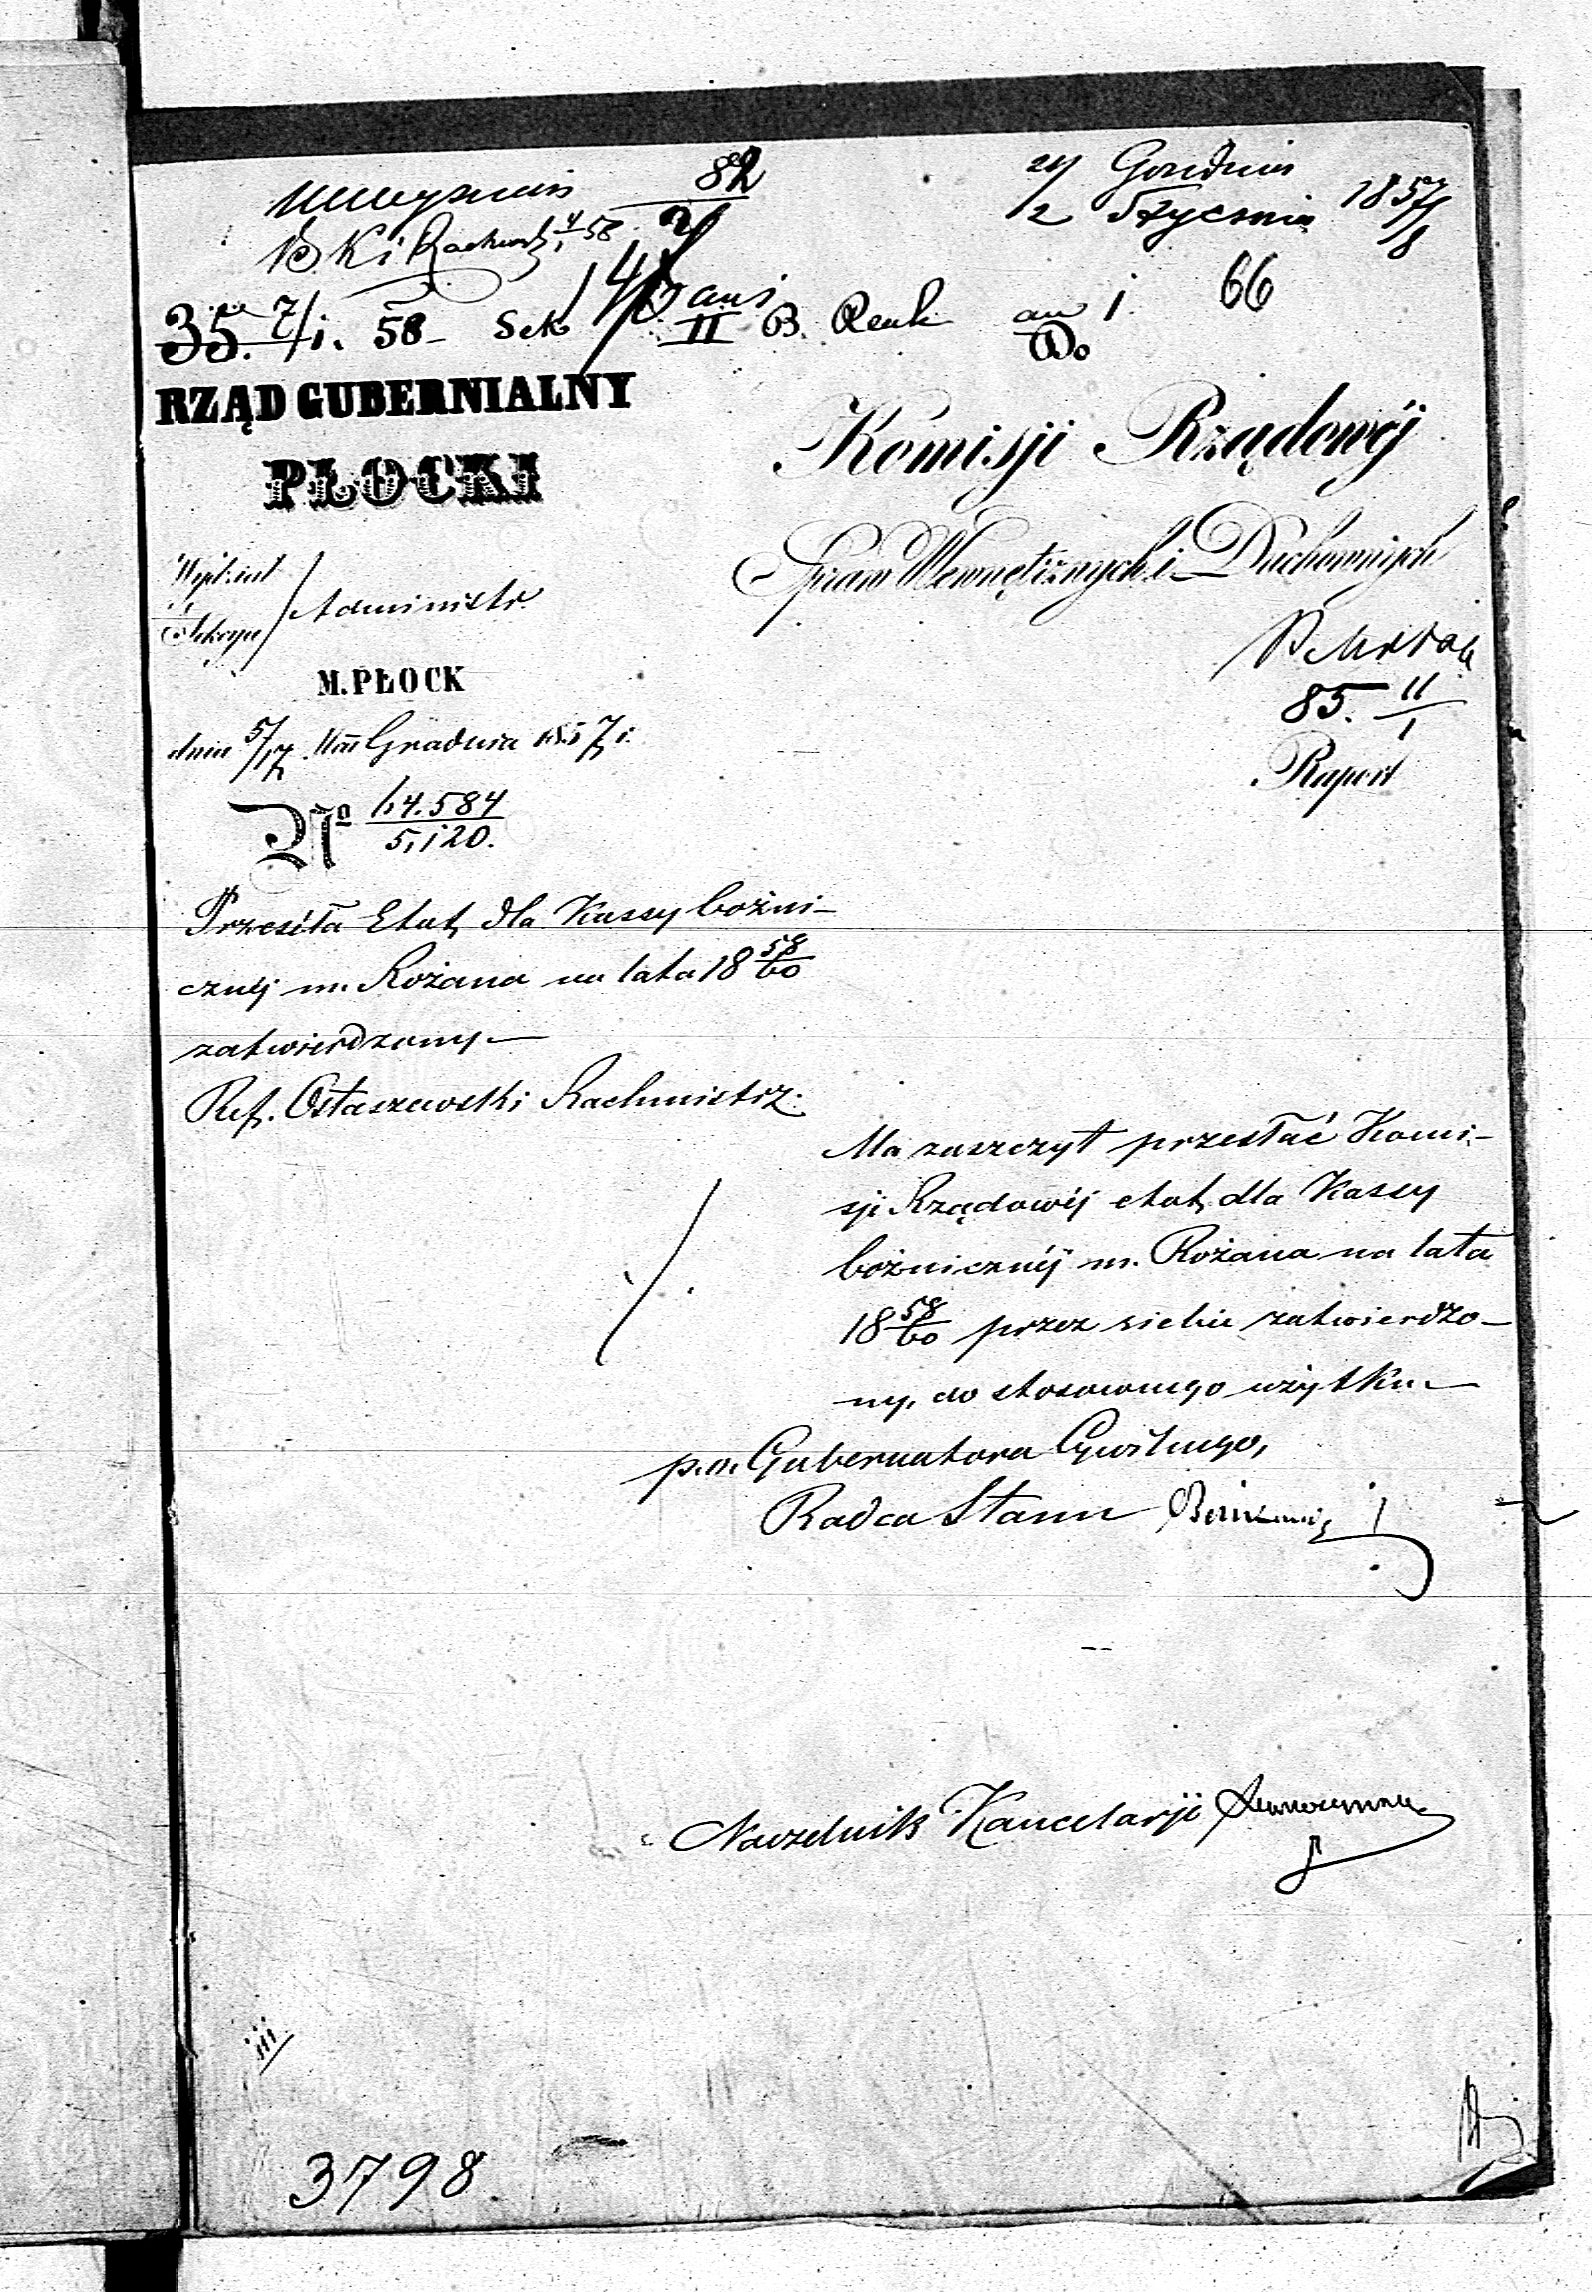 82
21 Grudnia
2 Stycznia 1857/8
B. K i Rachuck 4/1 58.
35. 7/1. 58 Sek II B.
66
RZĄD GUBERNIALNY
PŁOCKI
Do
Komisji Rządowéj
Spraw Wewnętrznych i Duchownych
Wydział
Sekcya
Administr.
85. 11/1
M. PŁOCK
dnia 5/17 Grudnia 1857 r.
Raport
No 64.584
5,120.
Przesyła Etat dla Kassy bożni-
cznéj m. Rożana na lata 18 58/60
zatwierdzony
Ref. Ostaszewski Rachmistrz.
Ma zaszczyt przesłać Komi-
sji Rządowéj etat dla Kassy
bożnicznéj m. Rożana na lata
18 58/60 przez siebie zatwierdzo-
ny, do stosownego użytku
p. o. Gubernatora Cywilnego,
Radca Stanu
Naczelnik Kancelarji
3798